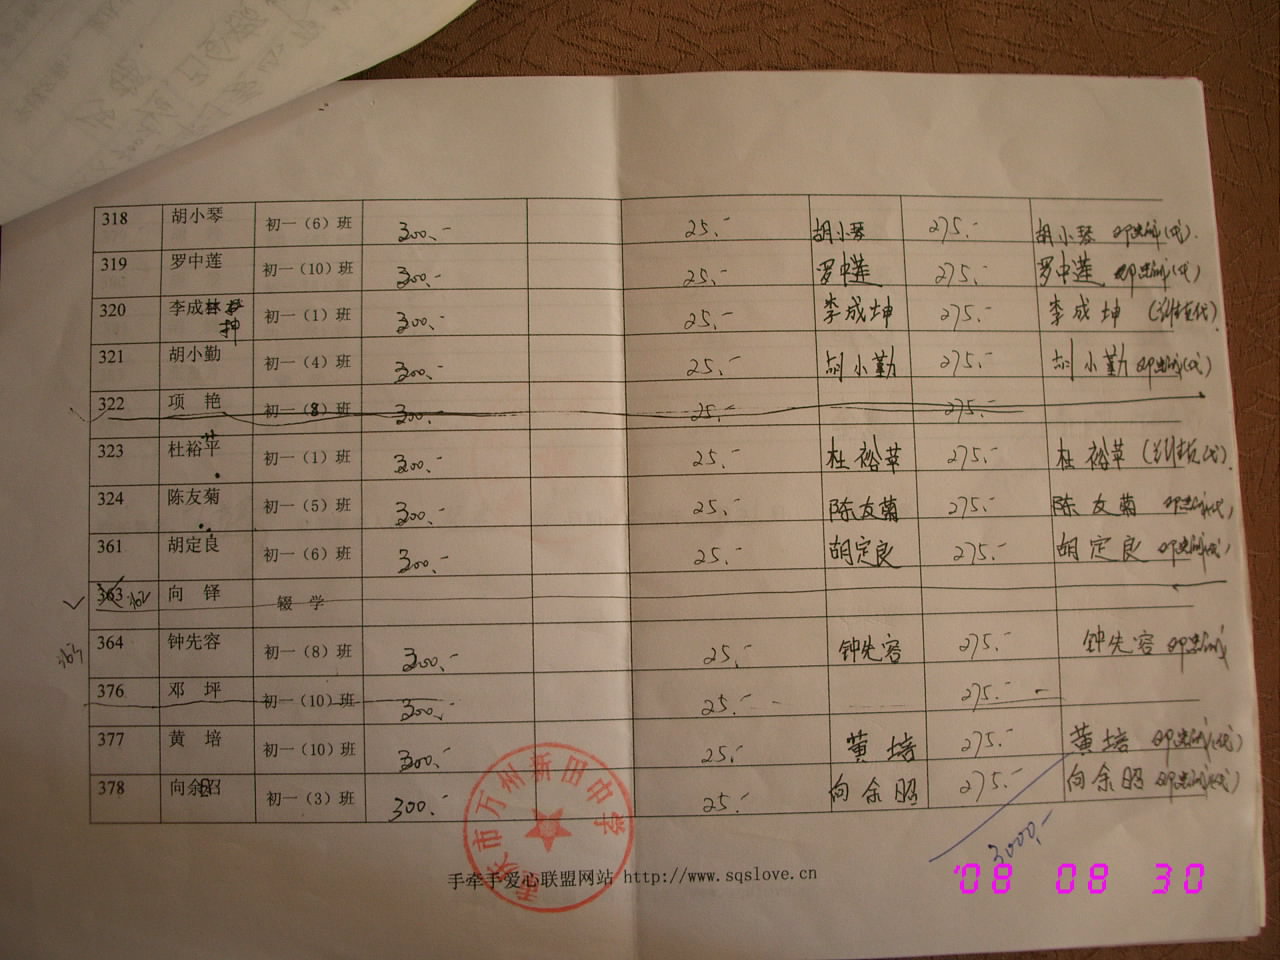 318 胡小琴 初一（6）班 300.- 25.- 胡小琴 275.- 胡小琴 (代)
319 罗中莲 初一（10）班 300.- 25.- 罗中莲 275.- 罗中莲 (代)
320 李成坤 初一（1）班 300.- 25.- 李成坤 275.- 李成坤 (代)
321 胡小勤 初一（4）班 300.- 25.- 胡小勤 275.- 胡小勤 (代)
322 项 艳 初一（8）班 300.- 25.- 275.-
323 杜裕苹 初一（1）班 300.- 25.- 杜裕苹 275.- 杜裕苹 (代)
324 陈友菊 初一（5）班 300.- 25.- 陈友菊 275.- 陈友菊 (代)
361 胡定良 初一（6）班 300.- 25.- 胡定良 275.- 胡定良 (代)
363 362 向 铎 辍 学
363 364 钟先容 初一（8）班 300.- 25.- 钟先容 275.- 钟先容
376 邓 坪 初一（10）班 300.- 25.- 275.-
377 黄 培 初一（10）班 300.- 25.- 黄培 275.- 黄培 (代)
378 向余昭 初一（3）班 300.- 25.- 向余昭 275.- 向余昭 (代)
3000.-
重庆市万州新田中学
手牵手爱心联盟网站 http://www.sqslove.cn
'08 08 30